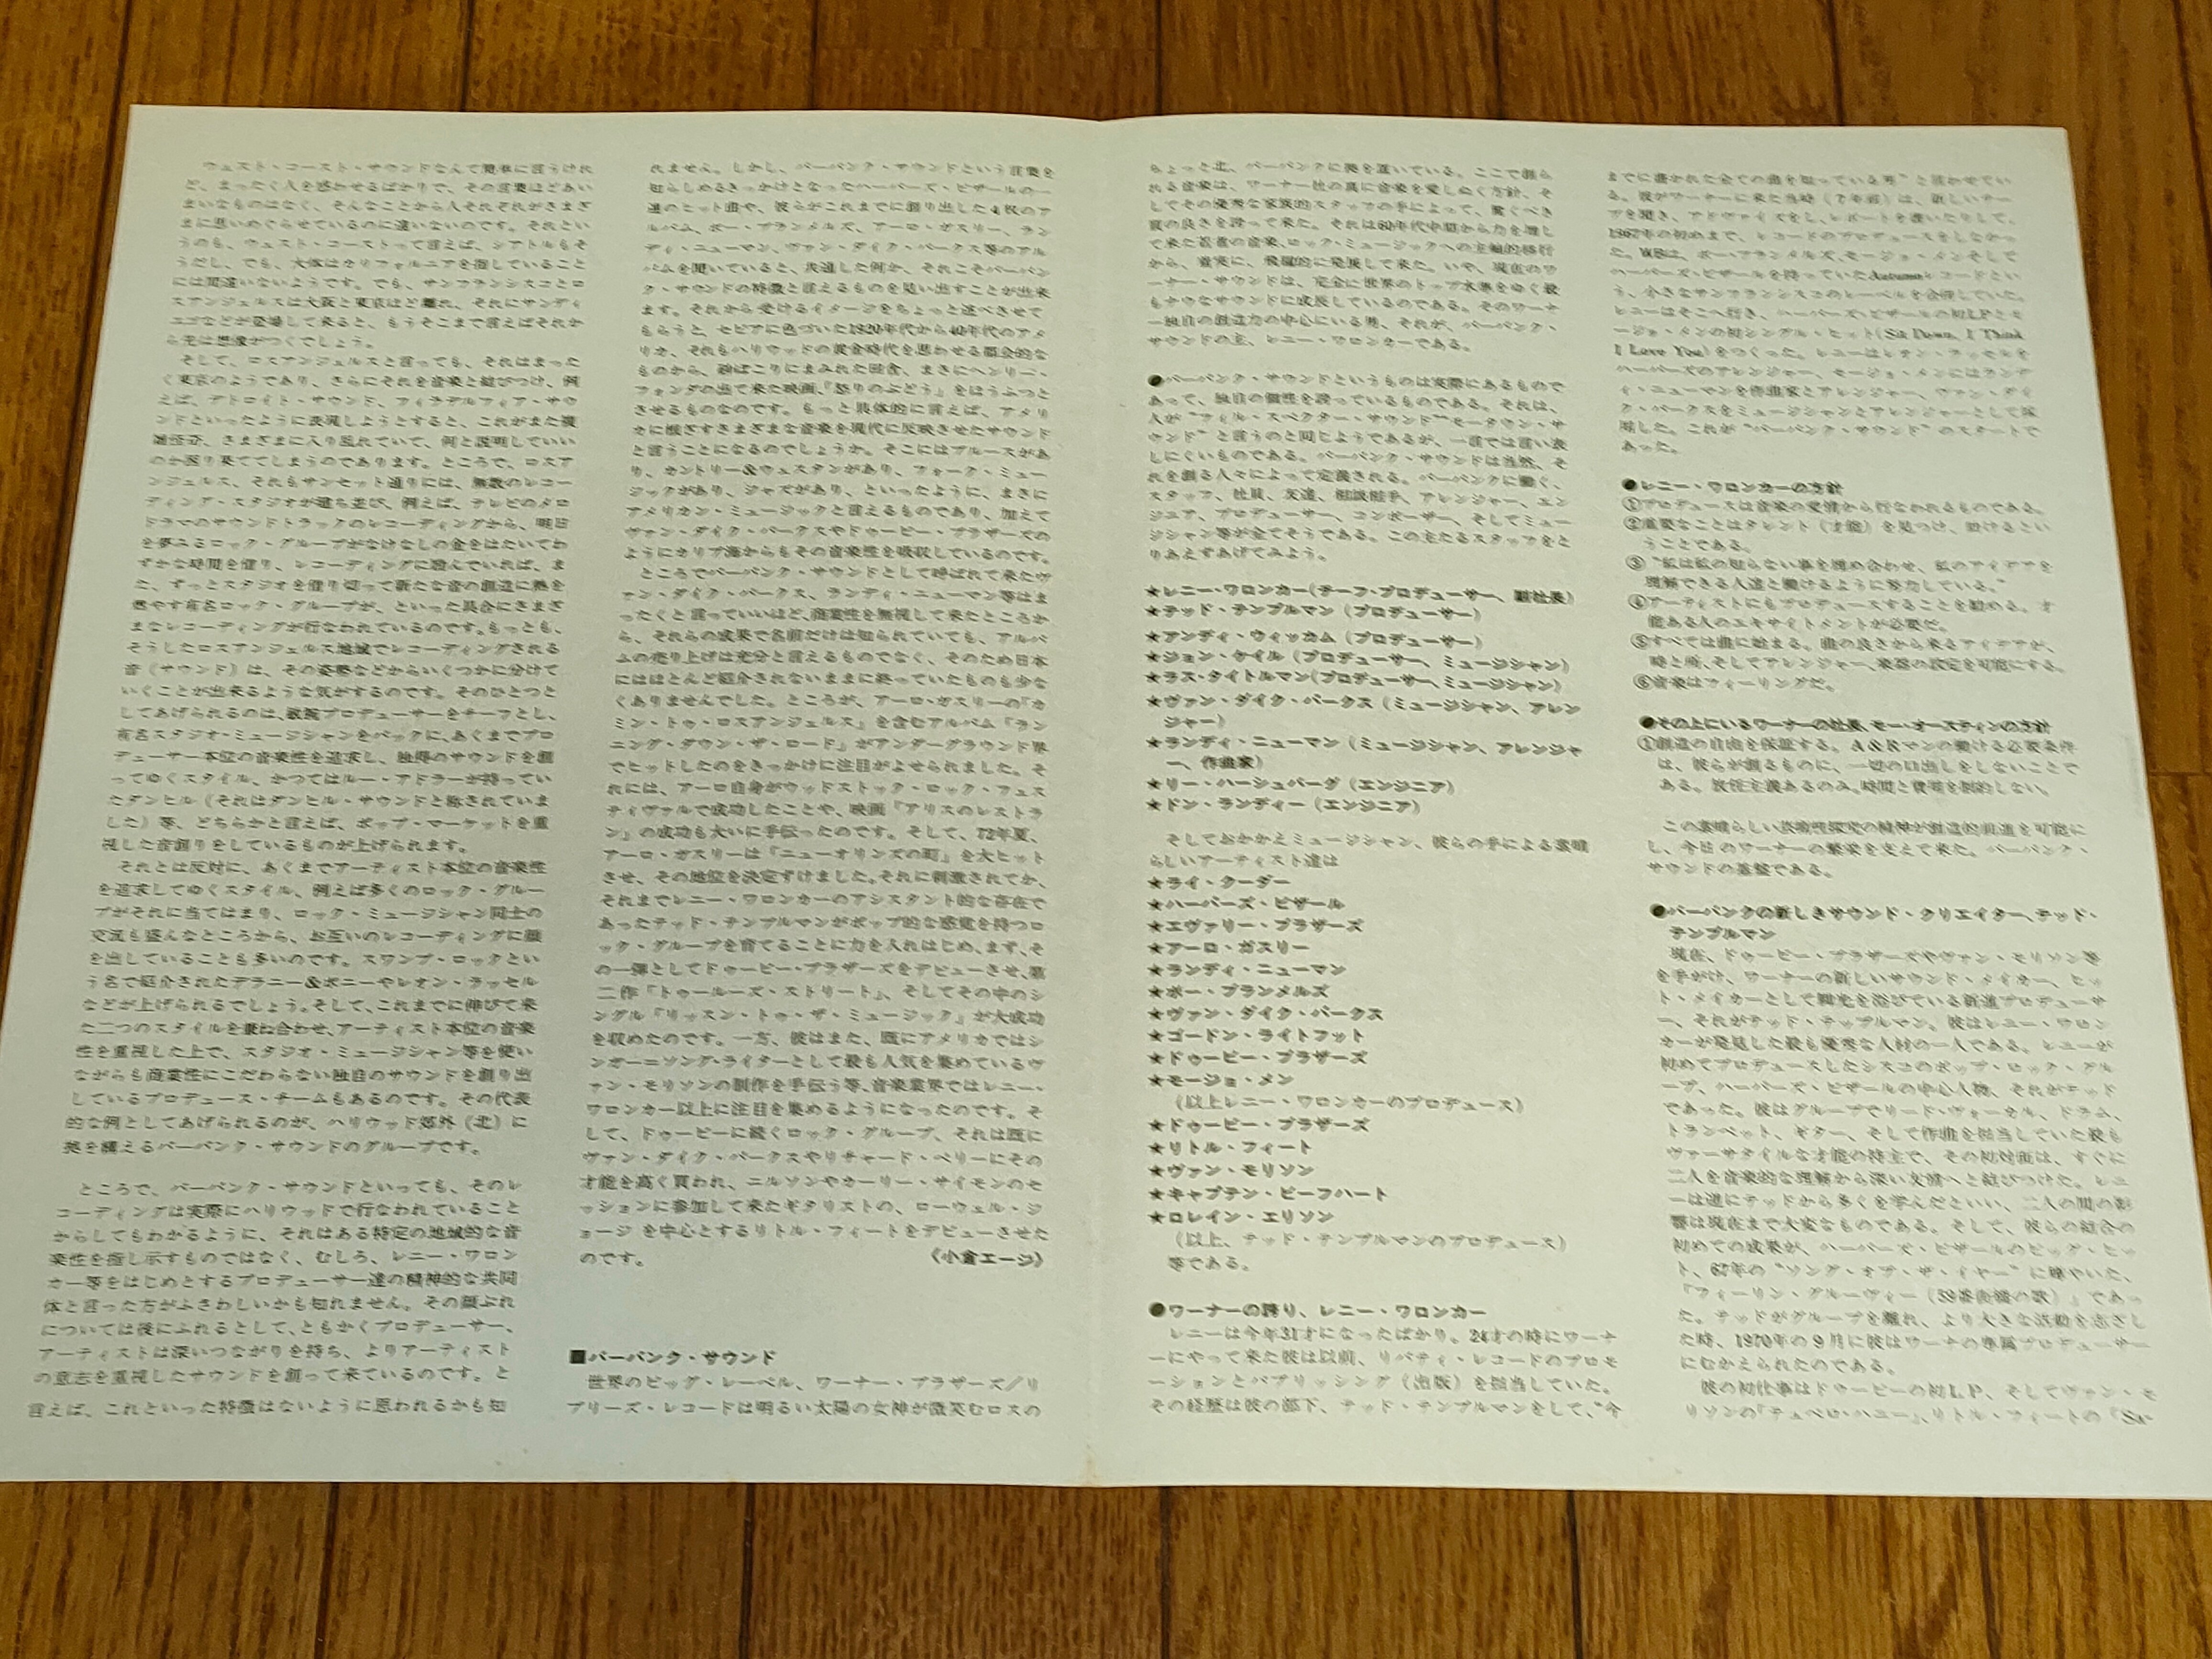 ウェスト・コースト・サウンドなんて簡単に言うけれ
ど、まったく人を惑わせるばかりで、その言葉ほどあい
まいなものはなく、そんなことから人それぞれがさまざ
まに思いめぐらせているのに違いないのです。それとい
うのも、ウェスト・コーストって言えば、シアトルもそ
うだし、でも、大体はカリフォルニアを指していること
には間違いないようです。でも、サンフランシスコとロ
スアンジェルスは大阪と東京ほど離れ、それにサンディ
エゴなどが登場して来ると、もうそこまで言えばそれか
ら先は想像がつくでしょう。
そして、ロスアンジェルスと言っても、それはまった
く東京のようであり、さらにそれを音楽と結びつけ、例
えば、デトロイト・サウンド、フィラデルフィア・サウ
ンドといったように表現しようとすると、これがまた複
雑怪奇、さまざまに入り乱れていて、何と説明していい
のか困り果ててしまうのであります。ところで、ロスア
ンジェルス、それもサンセット通りには、無数のレコー
ディング・スタジオが建ち並び、例えば、テレビのメロ
ドラマのサウンドトラックのレコーディングから、明日
を夢みるロック・グループがなけなしの金をはたいてわ
ずかな時間を借り、レコーディングに励んでいれば、ま
た、ずっとスタジオを借り切って新たな音の創造に熱を
燃やす有名ロック・グループが、といった具合にさまざ
まなレコーディングが行なわれているのです。もっとも、
そうしたロスアンジェルス地域でレコーディングされる
音（サウンド）は、その姿勢などからいくつかに分けて
いくことが出来るような気がするのです。そのひとつと
してあげられるのは、敏腕プロデューサーをチーフとし、
有名スタジオ・ミュージシャンをバックに、あくまでプロ
デューサー本位の音楽性を追求し、独得のサウンドを創
ってゆくスタイル、かつてはルー・アドラーが持ってい
たダンヒル（それはダンヒル・サウンドと称されていま
した）等、どちらかと言えば、ポップ・マーケットを重
視した音創りをしているものが上げられます。
それとは反対に、あくまでアーティスト本位の音楽性
を追求してゆくスタイル、例えば多くのロック・グルー
プがそれに当てはまり、ロック・ミュージシャン同士の
交流も盛んなところから、お互いのレコーディングに顔
を出していることも多いのです。スワンプ・ロックとい
う名で紹介されたデラニー&ボニーやレオン・ラッセル
などが上げられるでしょう。そして、これまでに伸びて来
た二つのスタイルを兼ね合わせ、アーティスト本位の音楽
性を重視した上で、スタジオ・ミュージシャン等を使い
ながらも商業性にこだわらない独自のサウンドを創り出
しているプロデュース・チームもあるのです。その代表
的な例としてあげられるのが、ハリウッド郊外（北）に
拠を構えるバーバンク・サウンドのグループです。
ところで、バーバンク・サウンドといっても、そのレ
コーディングは実際にハリウッドで行なわれていること
からしてもわかるように、それはある特定の地域的な音
楽性を指し示すものではなく、むしろ、レニー・ワロン
カー等をはじめとするプロデューサー達の精神的な共同
体と言った方がふさわしいかも知れません。その顔ぶれ
については後にふれるとして、ともかくプロデューサー、
アーティストは深いつながりを持ち、よりアーティスト
の意志を重視したサウンドを創って来ているのです。と
言えば、これといった特徴はないように思われるかも知
れません。しかし、バーバンク・サウンドという言葉を
知らしめるきっかけとなったハーパーズ・ビザールの一
連のヒット曲や、彼らがこれまでに創り出した4枚のア
ルバム、ボー・ブランメルズ、アーロ・ガスリー、ラン
ディ・ニューマン、ヴァン・ダイク・パークス等のアル
バムを聞いていると、共通した何か、それこそバーバン
ク・サウンドの特徴と言えるものを見い出すことが出来
ます。それから受けるイメージをちょっと述べさせて
もらうと、セピアに色づいた1920年代から40年代のアメ
リカ、それもハリウッドの黄金時代を思わせる都会的な
ものから、砂ぼこりにまみれた田舎、まさにヘンリー・
フォンダの出て来た映画、「怒りのぶどう」をほうふつと
させるものなのです。もっと具体的に言えば、アメリ
カに根ざすさまざまな音楽を現代に反映させたサウンド
と言うことになるのでしょうか。そこにはブルースがあ
り、カントリー&ウェスタンがあり、フォーク・ミュー
ジックがあり、ジャズがあり、といったように、まさに
アメリカン・ミュージックと言えるものであり、加えて
ヴァン・ダイク・パークスやドゥービー・ブラザーズの
ようにカリブ海からもその音楽性を吸収しているのです。
ところでバーバンク・サウンドとして呼ばれて来たヴ
ァン・ダイク・パークス、ランディ・ニューマン等はま
ったくと言っていいほど、商業性を無視して来たところか
ら、それらの成果で名前だけは知られていても、アルバ
ムの売り上げは充分と言えるものでなく、そのため日本
にはほとんど紹介されないままに終っていたものも少な
くありませんでした。ところが、アーロ・ガスリーの「カ
ミン・トゥ・ロスアンジェルス」を含むアルバム「ラン
ニング・ダウン・ザ・ロード」がアンダーグラウンド界
でヒットしたのをきっかけに注目がよせられました。そ
れには、アーロ自身がウッドストック・ロック・フェス
ティヴァルで成功したことや、映画「アリスのレストラ
ン」の成功も大いに手伝ったのです。そして、72年夏、
アーロ・ガスリーは「ニューオリンズの町」を大ヒット
させ、その地位を決定ずけました。それに刺激されてか、
それまでレニー・ワロンカーのアシスタント的な存在で
あったテッド・テンプルマンがポップ的な感覚を持つロ
ック・グループを育てることに力を入れはじめ、まず、そ
の一弾としてドゥービー・ブラザーズをデビューさせ、第
二作「トゥールーズ・ストリート」、そしてその中のシ
ングル「リッスン・トゥ・ザ・ミュージック」が大成功
を収めたのです。一方、彼はまた、既にアメリカではシ
ンガー＝ソング・ライターとして最も人気を集めているヴ
ァン・モリソンの制作を手伝う等、音楽業界ではレニー・
ワロンカー以上に注目を集めるようになったのです。そ
して、ドゥービーに続くロック・グループ、それは既に
ヴァン・ダイク・パークスやリチャード・ペリーにその
才能を高く買われ、ニルソンやカーリー・サイモンのセ
ッションに参加して来たギタリストの、ローウェル・ジ
ョージを中心とするリトル・フィートをデビューさせた
のです。　《小倉エージ》
■バーバンク・サウンド
世界のビッグ・レーベル、ワーナー・ブラザーズ／リ
プリーズ・レコードは明るい太陽の女神が微笑むロスの
ちょっと北、バーバンクに拠を置いている。ここで創ら
れる音楽は、ワーナー社の真に音楽を愛しぬく方針、そ
してその優秀な家族的スタッフの手によって、驚くべき
質の良さを誇って来た。それは60年代中期から力を増し
て来た若者の音楽、ロック・ミュージックへの主軸的移行
から、着実に、飛躍的に発展して来た。いや、現在のワ
ーナー・サウンドは、完全に世界のトップ水準をゆく最
もナウなサウンドに成長しているのである。そのワーナ
ー独自の創造力の中心にいる男、それが、バーバンク・
サウンドの主、レニー・ワロンカーである。
●バーバンク・サウンドというものは実際にあるもので
あって、独自の個性を誇っているものである。それは、
人が“フィル・スペクター・サウンド”“モータウン・サ
ウンド”と言うのと同じようであるが、一言では言い表
しにくいものである。バーバンク・サウンドは当然、そ
れを創る人々によって定義される。バーバンクに働く、
スタッフ、社員、友達、相談相手、アレンジャー、エン
ジニア、プロデューサー、コンポーザー、そしてミュー
ジシャン等が全てそうである。この主たるスタッフをと
りあえずあげてみよう。
★レニー・ワロンカー（チーフ・プロデューサー、副社長）
★テッド・テンプルマン（プロデューサー）
★アンディ・ウィッカム（プロデューサー）
★ジョン・ケイル（プロデューサー、ミュージシャン）
★ラス・タイトルマン（プロデューサー、ミュージシャン）
★ヴァン・ダイク・パークス（ミュージシャン、アレン
ジャー）
★ランディ・ニューマン（ミュージシャン、アレンジャ
ー、作曲家）
★リー・ハーシュバーグ（エンジニア）
★ドン・ランディー（エンジニア）
そしておかかえミュージシャン、彼らの手による素晴
らしいアーティスト達は
★ライ・クーダー
★ハーパーズ・ビザール
★エヴァリー・ブラザーズ
★アーロ・ガスリー
★ランディ・ニューマン
★ボー・ブランメルズ
★ヴァン・ダイク・パークス
★ゴードン・ライトフット
★ドゥービー・ブラザーズ
★モージョ・メン
（以上レニー・ワロンカーのプロデュース）
★ドゥービー・ブラザーズ
★リトル・フィート
★ヴァン・モリソン
★キャプテン・ビーフハート
★ロレイン・エリソン
（以上、テッド・テンプルマンのプロデュース）
等である。
●ワーナーの誇り、レニー・ワロンカー
レニーは今年31才になったばかり。24才の時にワーナ
ーにやって来た彼は以前、リバティ・レコードのプロモ
ーションとパブリッシング（出版）を担当していた。
その経歴は彼の部下、テッド・テンプルマンをして、“今
までに書かれた全ての曲を知っている男”と言わせてい
る。彼がワーナーに来た当時（7年前）は、新しいテー
プを聞き、アドヴァイスをし、レポートを書いたりして、
1967年の初めまで、レコードのプロデュースをしなかっ
た。WBは、ボー・ブランメルズ、モージョ・メンそして
ハーパーズ・ビザールを持っていたAutumnレコードとい
う、小さなサンフランシスコのレーベルを合併していた。
レニーはそこへ行き、ハーパーズ・ビザールの初LPとモ
ージョ・メンの初シングル・ヒット(Sit Down, I Think
I Love You)をつくった。レニーはレオン・ラッセルを
ハーパーズのアレンジャー、モージョ・メンにはランデ
ィ・ニューマンを作曲家とアレンジャー、ヴァン・ダイ
ク・パークスをミュージシャンとアレンジャーとして採
用した。これが“バーバンク・サウンド”のスタートで
あった。
●レニー・ワロンカーの方針
①プロデュースは音楽の愛情から行なわれるものである。
②重要なことはタレント（才能）を見つけ、助けるとい
うことである。
③“私は私の知らない事を埋め合わせ、私のアイデアを
理解できる人達と働けるように努力している。”
④アーティストにもプロデュースすることを勧める。才
能ある人のエキサイトメントが必要だ。
⑤すべては曲に始まる。曲の良さから来るアイデアが、
時と所、そしてアレンジャー、楽器の設定を可能にする。
⑥音楽はフィーリングだ。
●その上にいるワーナーの社長、モー・オースティンの方針
①創造の自由を保証する。A&Rマンの働ける必要条件
は、彼らが創るものに、一切の口出しをしないことで
ある。放任主義あるのみ。時間と費用を制約しない。
この素晴らしい芸術性探究の精神が創造的前進を可能に
し、今日のワーナーの繁栄を支えて来た。バーバンク・
サウンドの基盤である。
●バーバンクの新しきサウンド・クリエイター、テッド・
テンプルマン
現在、ドゥービー・ブラザーズやヴァン・モリソン等
を手がけ、ワーナーの新しいサウンド・メイカー、ヒッ
ト・メイカーとして脚光を浴びている新進プロデューサ
ー、それがテッド・テップルマン。彼はレニー・ワロン
カーが発見した最も優秀な人材の一人である。レニーが
初めてプロデュースしたシスコのポップ・ロック・グル
ープ、ハーパーズ・ビザールの中心人物、それがテッド
であった。彼はグループでリード・ヴォーカル、ドラム、
トランペット、ギター、そして作曲を担当していた最も
ヴァーサタイルな才能の持主で、その初対面は、すぐに
二人を音楽的な理解から深い友情へと結びつけた。レニ
ーは逆にテッドから多くを学んだといい、二人の間の影
響は現在まで大変なものである。そして、彼らの結合の
初めての成果が、ハーパーズ・ビザールのビッグ・ヒッ
ト、67年の“ソング・オブ・ザ・イヤー”に輝やいた、
「フィーリン・グルーヴィー（59番街橋の歌）」であっ
た。テッドがグループを離れ、より大きな活動を志ざし
た時、1970年の9月に彼はワーナーの専属プロデューサー
にむかえられたのである。
彼の初仕事はドゥービーの初LP、そしてヴァン・モ
リソンの「テュペロ・ハニー」、リトル・フィートの「Sa-